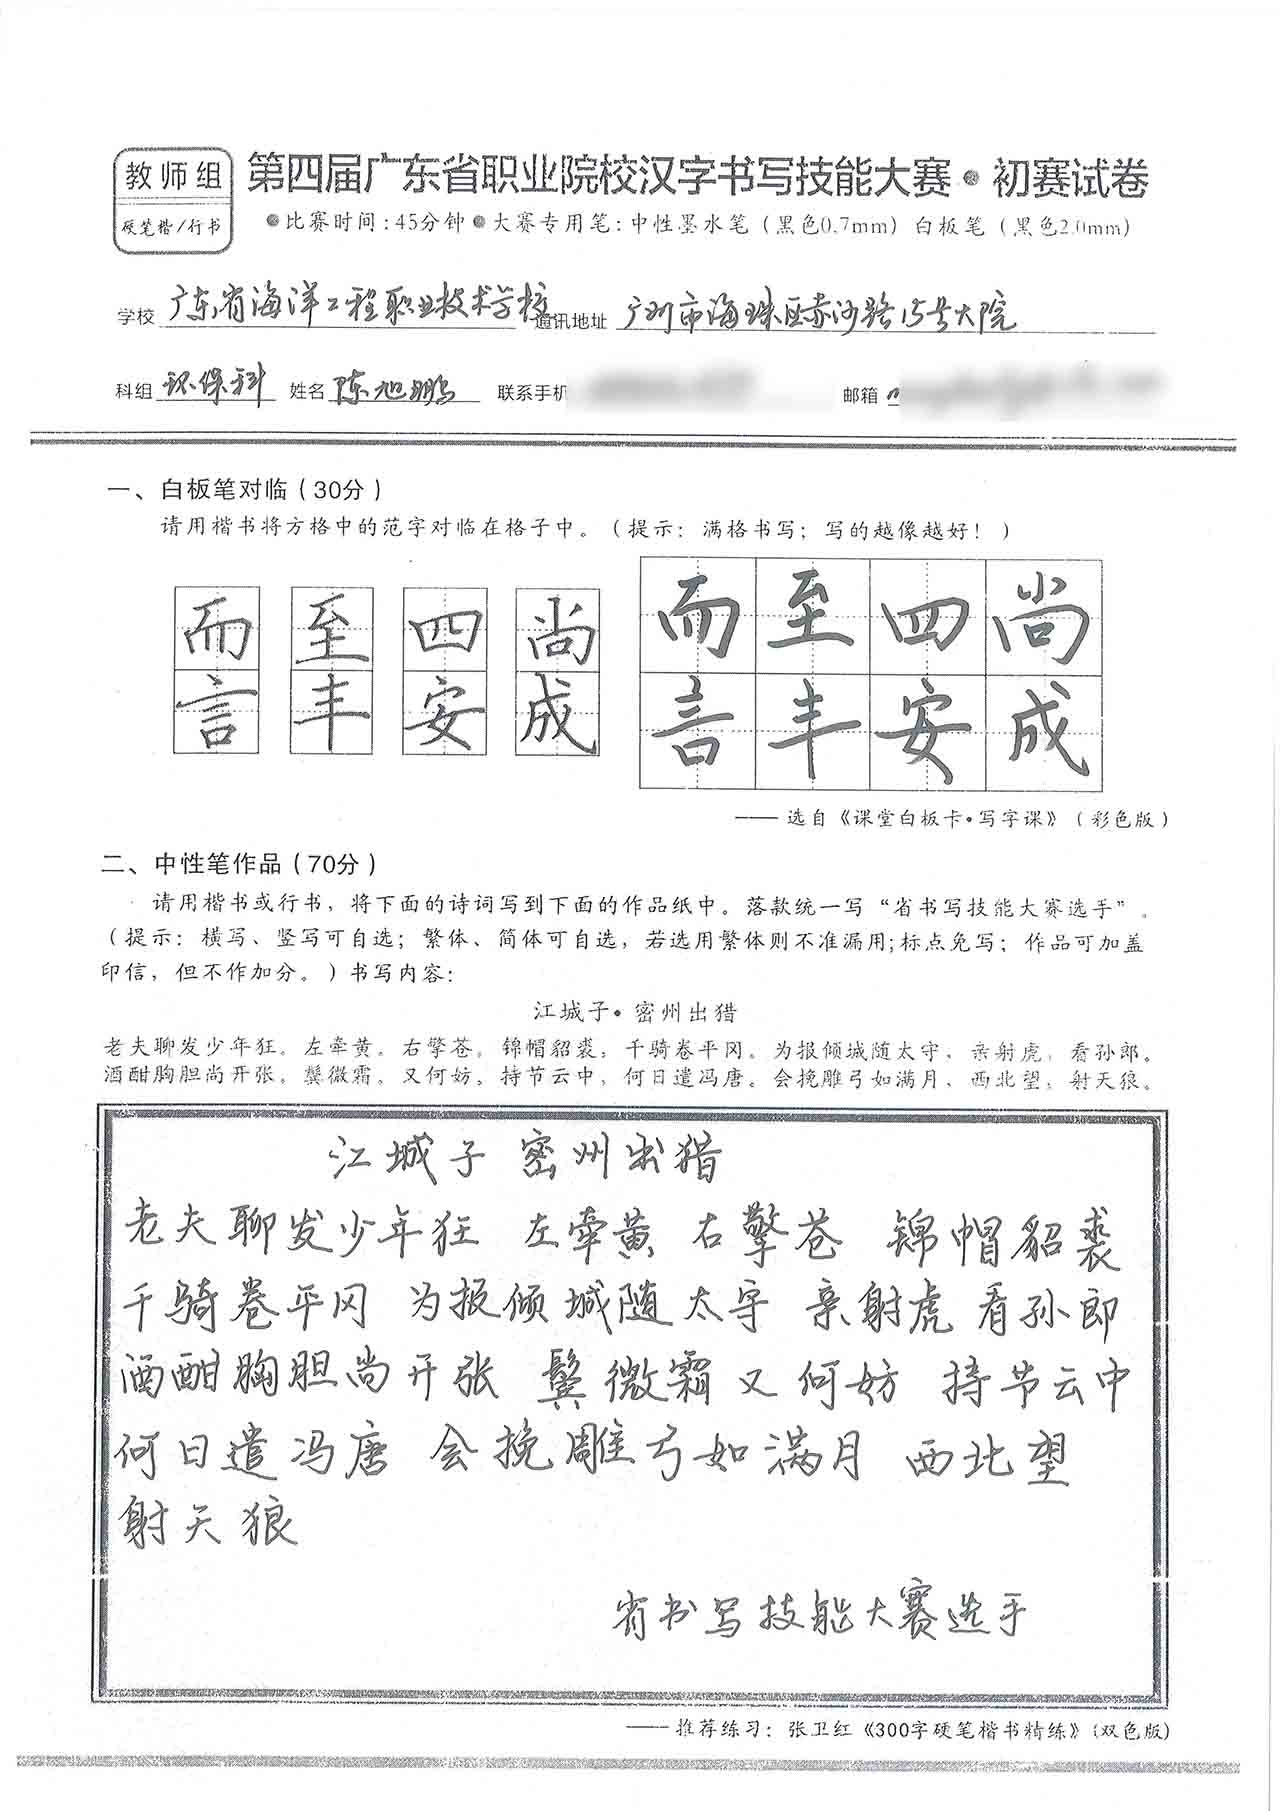 教师组
硬笔楷/行书
第四届广东省职业院校汉字书写技能大赛•初赛试卷
●比赛时间:45分钟●大赛专用笔:中性墨水笔（黑色0.7mm）白板笔（黑色2.0mm）
学校 广东省海洋工程职业技术学校 通讯地址 广州市海珠区赤沙路15号大院
科组 环保科 姓名 陈旭鹏 联系手机 邮箱
一、白板笔对临（30分）
请用楷书将方格中的范字对临在格子中。（提示：满格书写；写的越像越好！）
而 至 四 尚 而 至 四 尚
言 丰 安 成 言 丰 安 成
——选自《课堂白板卡•写字课》（彩色版）
二、中性笔作品（70分）
请用楷书或行书，将下面的诗词写到下面的作品纸中。落款统一写“省书写技能大赛选手”。
（提示：横写、竖写可自选；繁体、简体可自选，若选用繁体则不准漏用;标点免写；作品可加盖
印信，但不作加分。）书写内容：
江城子•密州出猎
老夫聊发少年狂。左牵黄。右擎苍。锦帽貂裘，千骑卷平冈。为报倾城随太守，亲射虎，看孙郎。
酒酣胸胆尚开张。鬓微霜。又何妨。持节云中，何日遣冯唐。会挽雕弓如满月，西北望，射天狼。
江城子 密州出猎
老夫聊发少年狂 左牵黄 右擎苍 锦帽貂裘
千骑卷平冈 为报倾城随太守 亲射虎 看孙郎
酒酣胸胆尚开张 鬓微霜 又何妨 持节云中
何日遣冯唐 会挽雕弓如满月 西北望
射天狼
省书写技能大赛选手
——推荐练习：张卫红《300字硬笔楷书精练》(双色版)